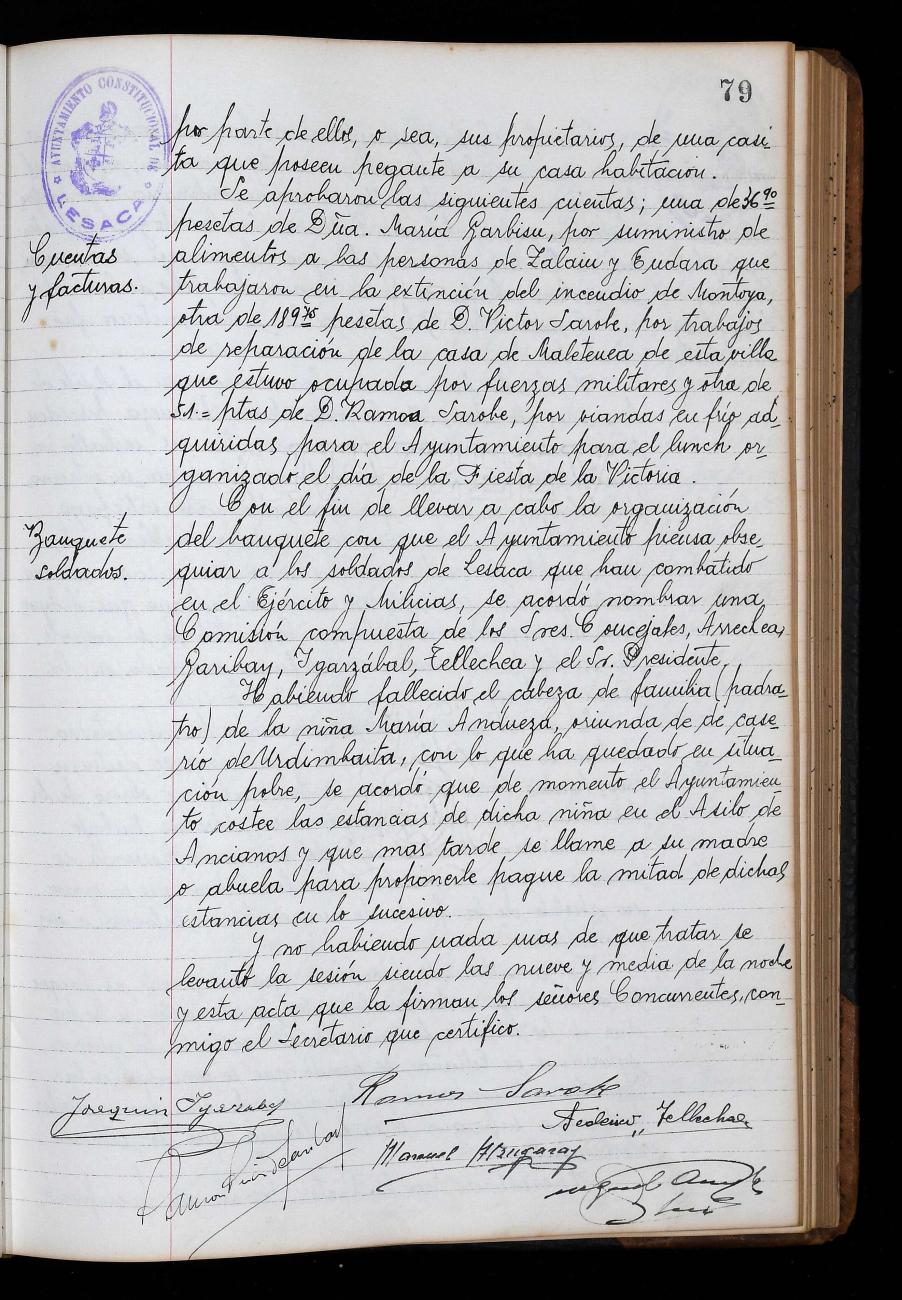 79
AYUNTAMIENTO CONSTITUCIONAL DE
LESACA
por parte de ellos, o sea, sus propietarios, de una casi-
ta que poseen pegante a su casa habitación.
Se aprobaron las siguientes cuentas; una de 36'90
Cuentas
y facturas.
pesetas de Dña. María Garbisu, por suministro de
alimentos a las personas de Zalain y Eudara que
trabajaron en la extinción del incendio de Montoya,
otra de 189'75 pesetas de D. Victor Sarobe, por trabajos
de reparación de la casa de Maletenea de esta villa
que estuvo ocupada por fuerzas militares y otra de
51.= ptas de D. Ramon Sarobe, por viandas en frío ad-
quiridas para el Ayuntamiento para el lunch or-
ganizado el día de la Fiesta de la Victoria.
Con el fin de llevar a cabo la organización
Banquete
soldados.
del banquete con que el Ayuntamiento piensa obse-
quiar a los soldados de Lesaca que han combatido
en el Ejército y Milicias, se acordó nombrar una
Comisión compuesta de los Sres. Concejales, Arrechea,
Garibay, Igarzábal, Tellechea y el Sr. Presidente.
Habiendo fallecido el cabeza de familia (padras-
tro) de la niña María Andueza, oriunda de de case-
río de Urdimbaita, con lo que ha quedado en situa-
ción pobre, se acordó que de momento el Ayuntamien-
to costee las estancias de dicha niña en el Asilo de
Ancianos y que mas tarde se llame a su madre
o abuela para proponerle pague la mitad de dichas
estancias en lo sucesivo.
Y no habiendo nada mas de que tratar se
levantó la sesión siendo las nueve y media de la noche
y esta acta que la firman los señores Concurrentes, con-
migo el Secretario que certifico.
Joaquin Igarzabal
Ramon Sarobe
Federico Tellechea
Manuel